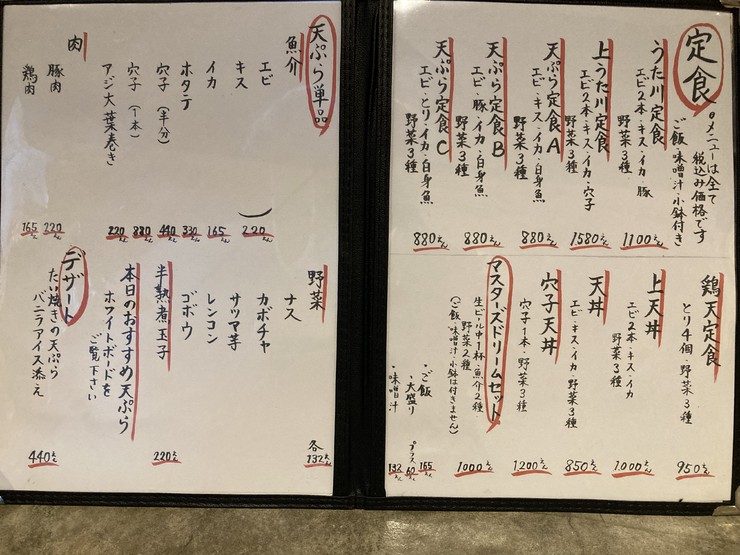 定食
○メニューは全て
税込み価格です
ご飯・味噌汁・小鉢付き
うた川定食
エビ2本・キス・イカ・豚
野菜3種
1100えん
上うた川定食
エビ2本・キス・イカ・穴子
野菜3種
1580えん
天ぷら定食A
エビ・キス・イカ・白身魚
野菜3種
880えん
天ぷら定食B
エビ・豚・イカ・白身魚
野菜3種
880えん
天ぷら定食C
エビ・とり・イカ・白身魚
野菜3種
880えん
鶏天定食
とり4個・野菜3種
950えん
上天丼
エビ2本・キス・イカ
野菜3種
1000えん
天丼
エビ・キス・イカ・野菜3種
850えん
穴子天丼
穴子1本・野菜3種
1200えん
マスターズドリームセット
生ビール中1杯・魚介2種
野菜2種
(ご飯・味噌汁・小鉢は付きません)
1000えん
・ご飯
165えん
・大盛り
プラス60えん
・味噌汁
132えん
天ぷら単品
魚介
エビ
220えん
キス
イカ
165えん
ホタテ
330えん
穴子(半分)
440えん
穴子(1本)
880えん
アジ大葉巻き
220えん
肉
豚肉
220えん
鶏肉
165えん
野菜
各132えん
ナス
カボチャ
サツマ芋
レンコン
ゴボウ
半熟煮玉子
220えん
本日のおすすめ天ぷら
ホワイトボードを
ご覧下さい
デザート
たい焼きの天ぷら
バニラアイス添え
440えん